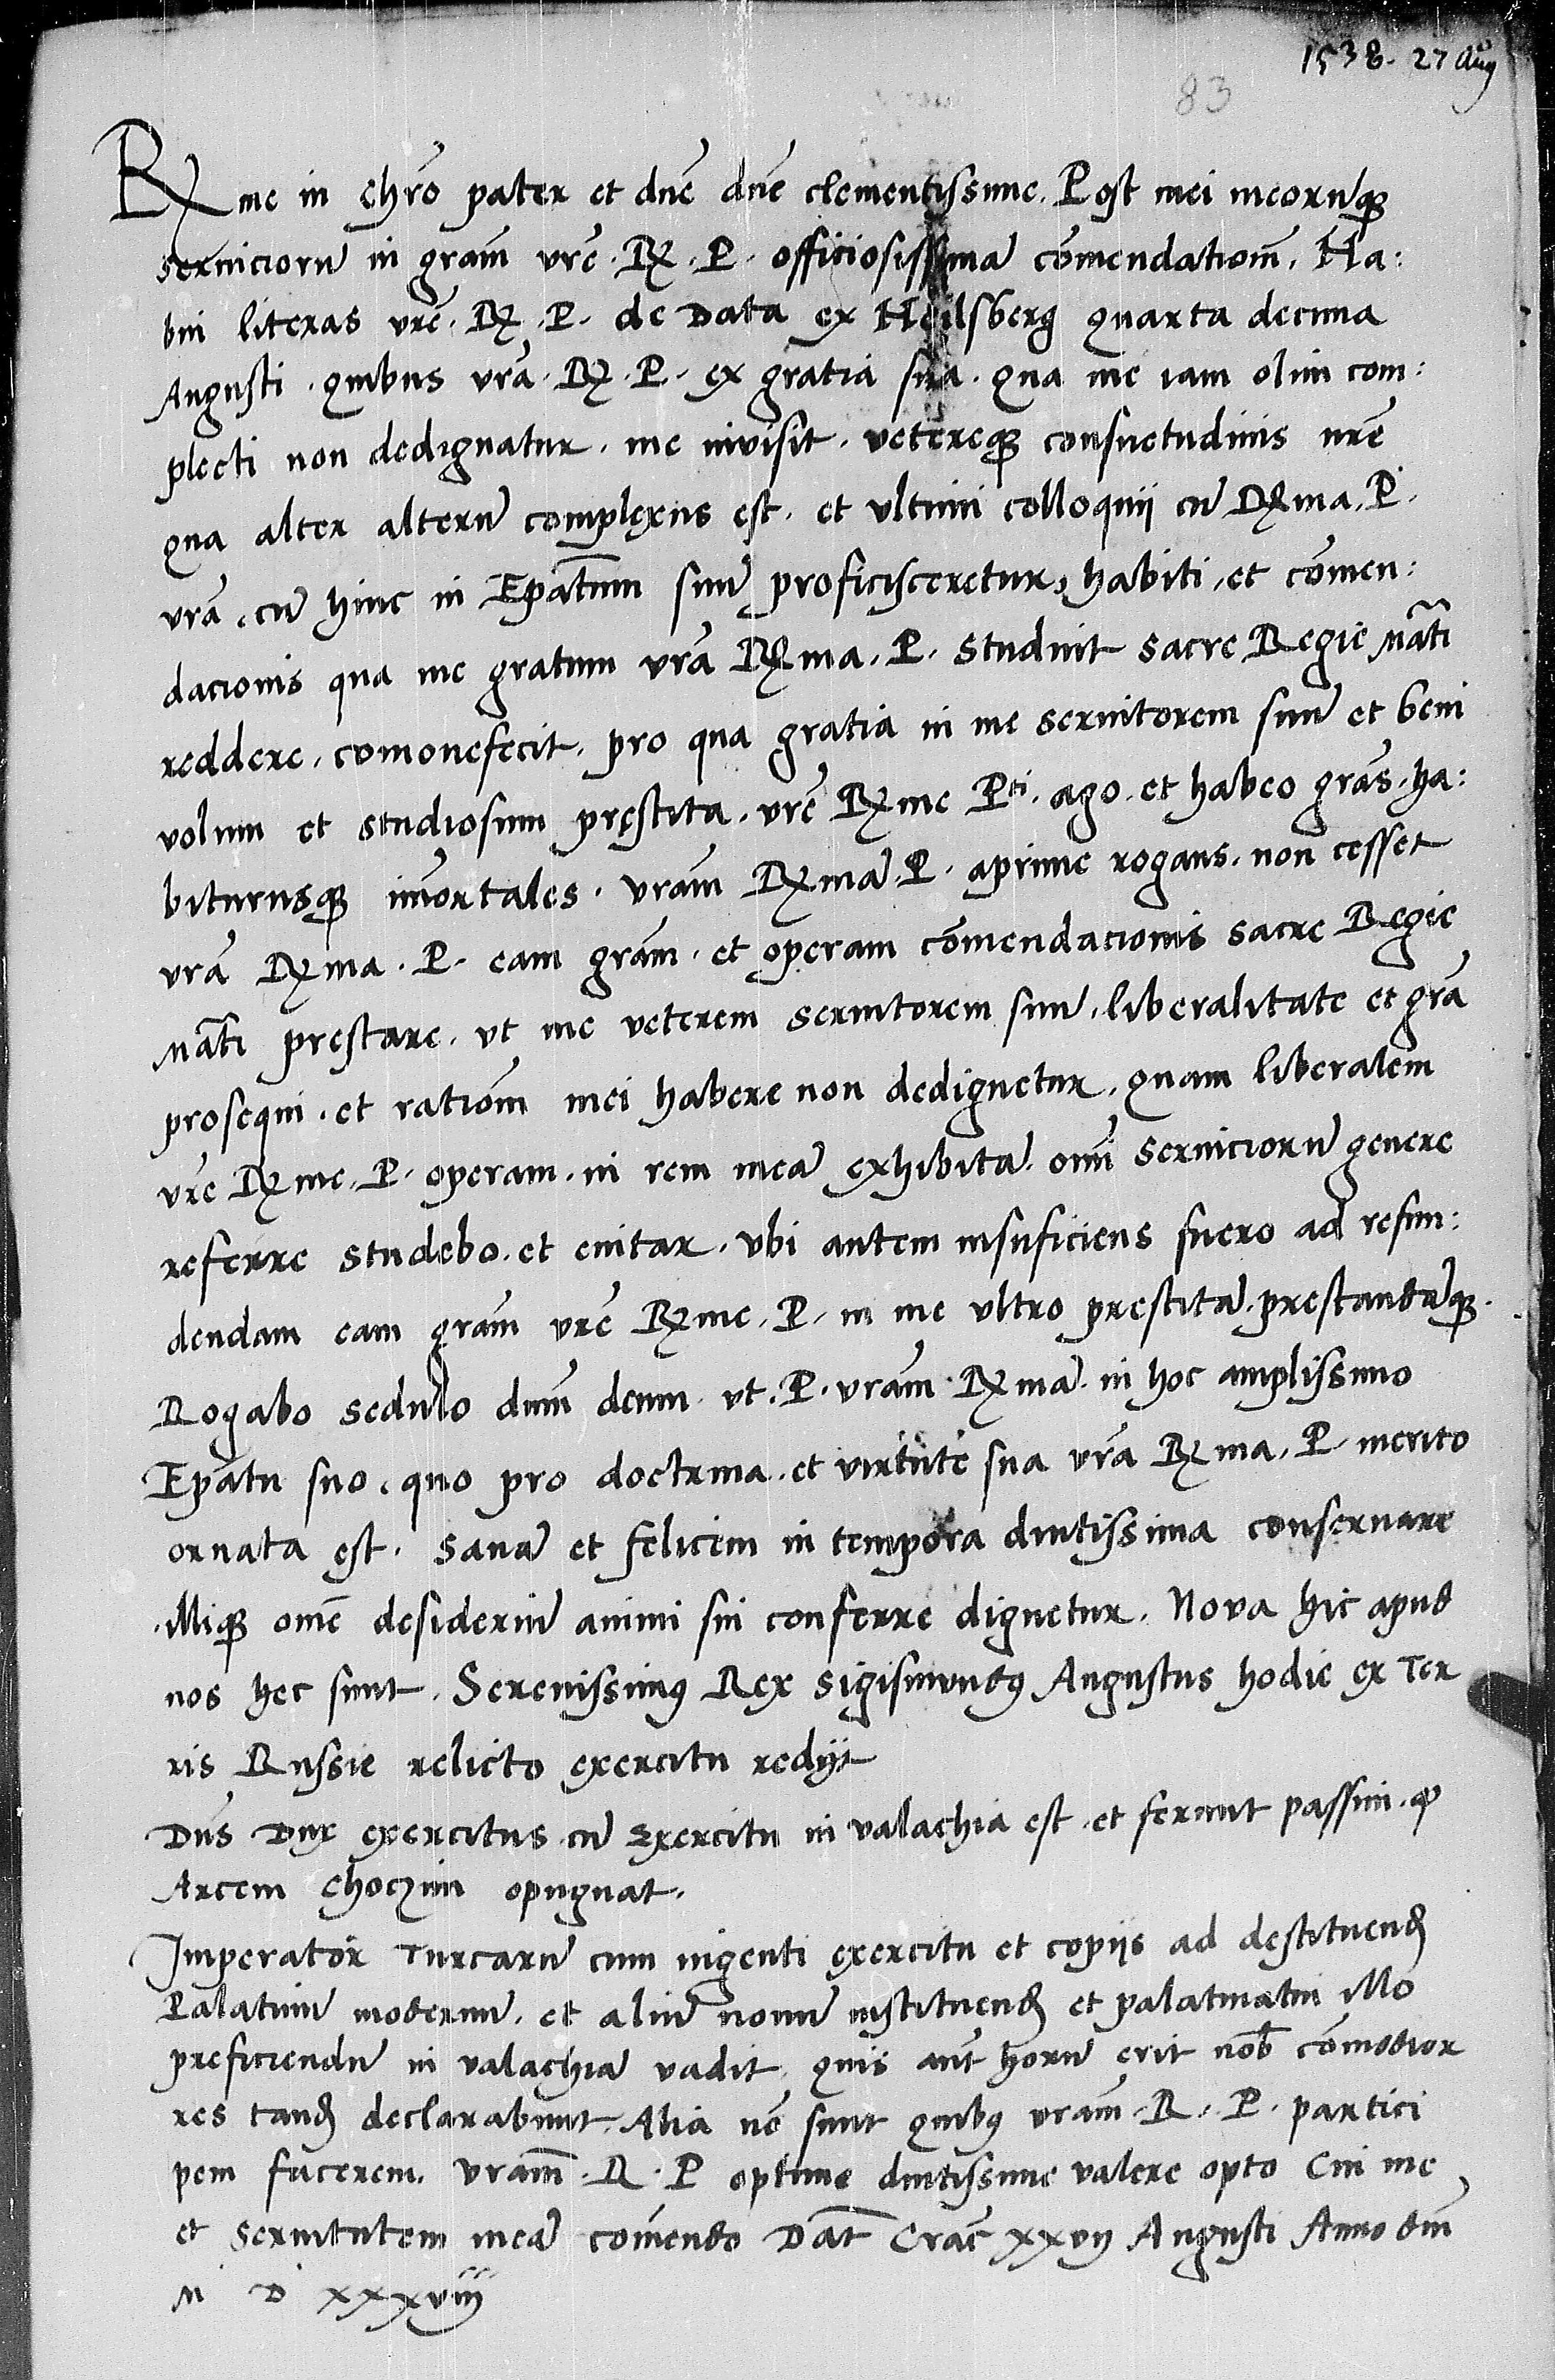 1538. 27 Aug
83
Rxme in chro pater et dne dne clementissime. Post mei meorumq
serviciorum in gram vre. Rx. P. officiosissima comendationem. Ha:
bui literas vre. Rx. P. de Data ex Heilsberg quarta decima
Augusti. quibus vra. Rx. P. ex gratia sua. qua me iam olim com:
plecti non dedignatur. me invisit. vetereq consuetudinis nre
qua alter alterum complexus est. et ultimi colloquii cum Rxma. P.
vra. cum hinc in Epatum suum proficisceretur, habiti, et comen:
dacionis qua me gratum vra Rxma. P. studuit sacre Regie Mati
reddere. comonefecit. pro qua gratia in me servitorem suum et beni
volum et studiosum pręstita. vre Rxme Pti. ago. et habeo gras. ha:
biturusq imortales. vram Rxmam. P. aprime rogans. non cesset
vra Rxma. P. eam gram. et operam comendacionis sacre Regie
Mati prestare. ut me veterem servitorem suum, liberalitate et gra
prosequi. et rationem mei habere non dedignetur. quam liberalem
vre Rxme. P. operam. in rem meam exhibitam. omni serviciorum genere
referre studebo. et enitar. ubi autem insuficiens fuero ad refun:
dendam eam gram vre Rxme. P. in me ultro prestitam. prestandamq.
Rogabo sedulo dnum deum. ut. P. vram Rxmam. in hoc amplissimo
Epatu suo. quo pro doctrina. et virtute sua vra Rxma. P. merito
ornata est. sanam et felicem in tempora diutissima conservare
illiq ome desiderium animi sui conferre dignetur. Nova hic apud
nos hec sunt. Serenissimus Rex Sigismundus Augustus hodie ex Ter
ris Russie relicto exercitu rediit
Dns Dux exercitus cum Exercitu in valachia est. et ferunt passim. q
Arcem Choczim opugnat.
Imperator Turcarum cum ingenti exercitu et copiis ad destituend
Palatinum modernum. et alium novum instituend et palatinatui illo
preficiendum in valachiam vadit. quis aut horum erit nob comodior
res tand declarabunt. Alia no sunt quibus vram. R. P. partici
pem facerem. vram. R. P optime diutissime valere opto Cui me
et servitutem meam comendo Dat Crac xxvii Augusti Anno dni
M D xxxviii